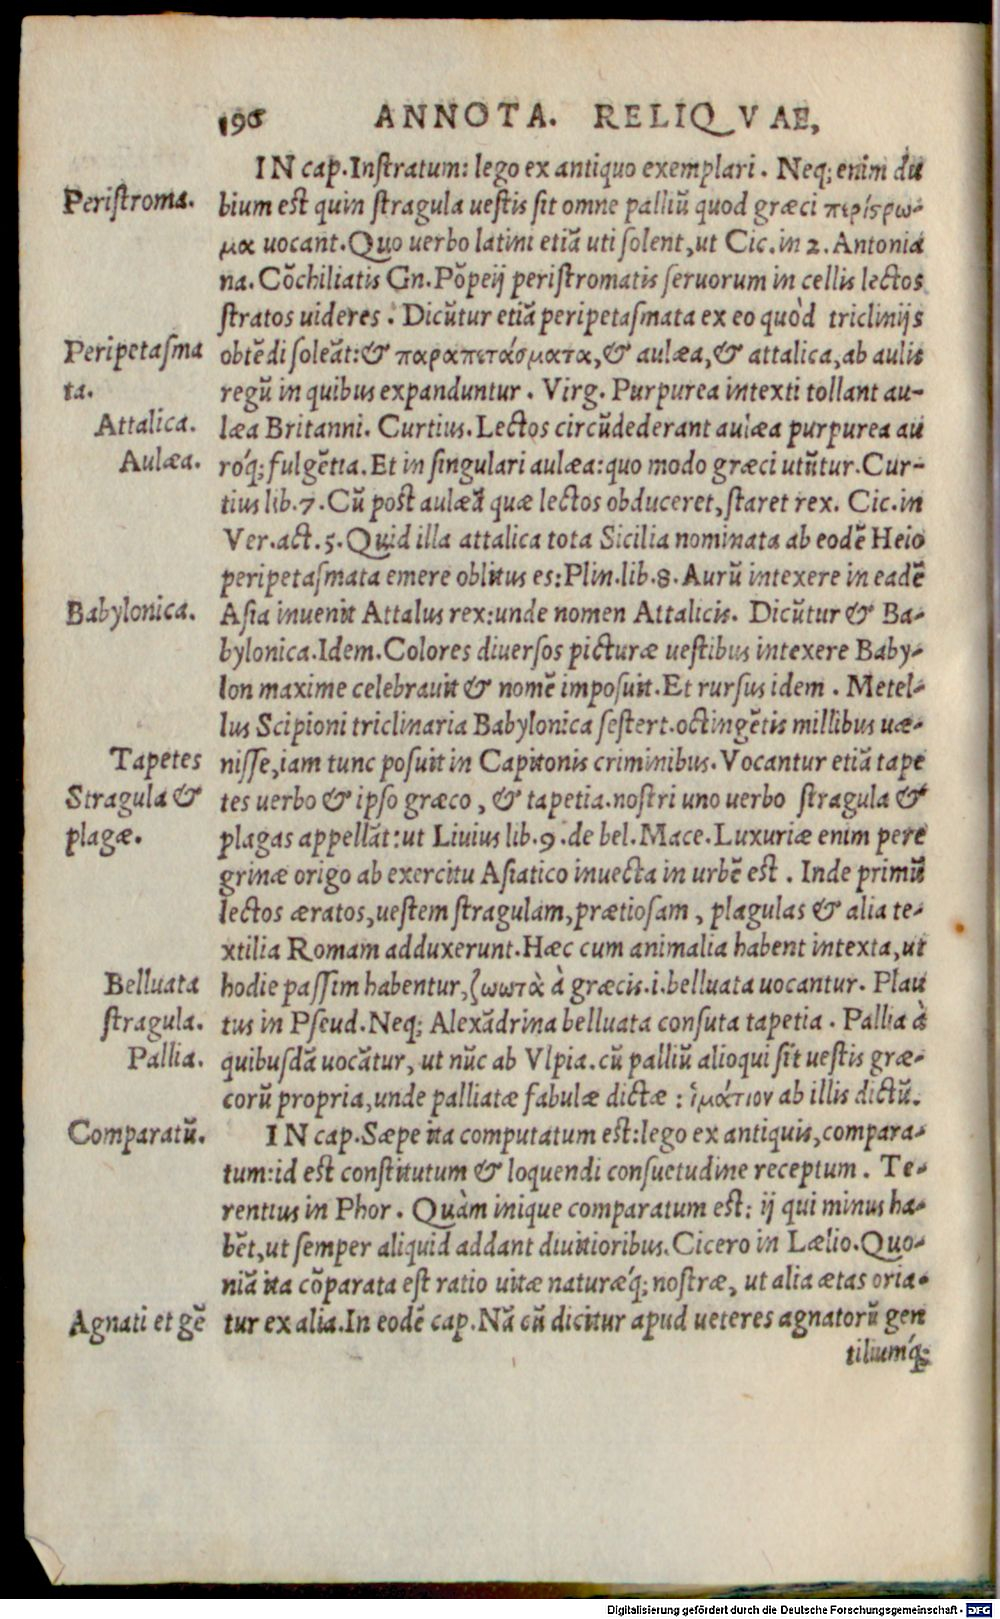 190 ANNOTA. RELIQVAE,
IN cap. Instratum: lego ex antiquo exemplari. Neq; enim du
Peristroma. bium est quin stragula uestis sit omne palliũ quod græci περίστρω-
μα uocant. Quo uerbo latini etiã uti solent, ut Cic. in 2. Antonia
na. Cõchiliatis Gn. Põpeij peristromatis seruorum in cellis lectos
stratos uideres. Dicũtur etiã peripetasmata ex eo quòd tricliniis
Peripetasma obtẽdi soleãt: & παραπετάσματα, & aulæa, & attalica, ab aulis
ta. regũ in quibus expanduntur. Virg. Purpurea intexti tollant au-
Attalica. læa Britanni. Curtius. Lectos circũdederant aulæa purpurea au
Aulæa. róq; fulgẽtia. Et in singulari aulæa: quo modo græci utũtur. Cur-
tius lib. 7. Cũ post aulæã quæ lectos obduceret, staret rex. Cic. in
Ver. act. 5. Quid illa attalica tota Sicilia nominata ab eodẽ Heio
peripetasmata emere oblitus es: Plin. lib. 8. Aurũ intexere in eadẽ
Babylonica. Asia inuenit Attalus rex: unde nomen Attalicis. Dicũtur & Ba-
bylonica. Idem. Colores diuersos picturæ uestibus intexere Baby-
lon maxime celebrauit & nomẽ imposuit. Et rursus idem. Metel-
lus Scipioni triclinaria Babylonica sestert. octingẽtis millibus uæ-
Tapetes nisse, iam tunc posuit in Capitonis criminibus. Vocantur etiã tape
Stragula & tes uerbo & ipso græco, & tapetia. nostri uno uerbo stragula &
plagæ. plagas appellãt: ut Liuius lib. 9. de bel. Mace. Luxuriæ enim pere
grinæ origo ab exercitu Asiatico inuecta in urbẽ est. Inde primũ
lectos æratos, uestem stragulam, prætiosam, plagulas & alia te-
xtilia Romam adduxerunt. Hæc cum animalia habent intexta, ut
Belluata hodie passim habentur, ζωωτὰ à græcis. i. belluata uocantur. Plau
stragula. tus in Pseud. Neq; Alexãdrina belluata consuta tapetia. Pallia à
Pallia. quibusdã uocãtur, ut nũc ab Vlpia. cũ palliũ alioqui sit uestis græ-
corũ propria, unde palliatæ fabulæ dictæ: ἱμάτιον ab illis dictũ.
Comparatũ. IN cap. Sæpe ita computatum est: lego ex antiquis, compara-
tum: id est constitutum & loquendi consuetudine receptum. Te-
rentius in Phor. Quàm inique comparatum est: ij qui minus ha-
bẽt, ut semper aliquid addant diuitioribus. Cicero in Lælio. Quo-
niã ita cõparata est ratio uitæ naturæq́; nostræ, ut alia ætas oria-
Agnati et gẽ tur ex alia. In eodẽ cap. Nã cũ dicitur apud ueteres agnatorũ gen
tiliumq́;
Digitalisierung gefördert durch die Deutsche Forschungsgemeinschaft - DFG